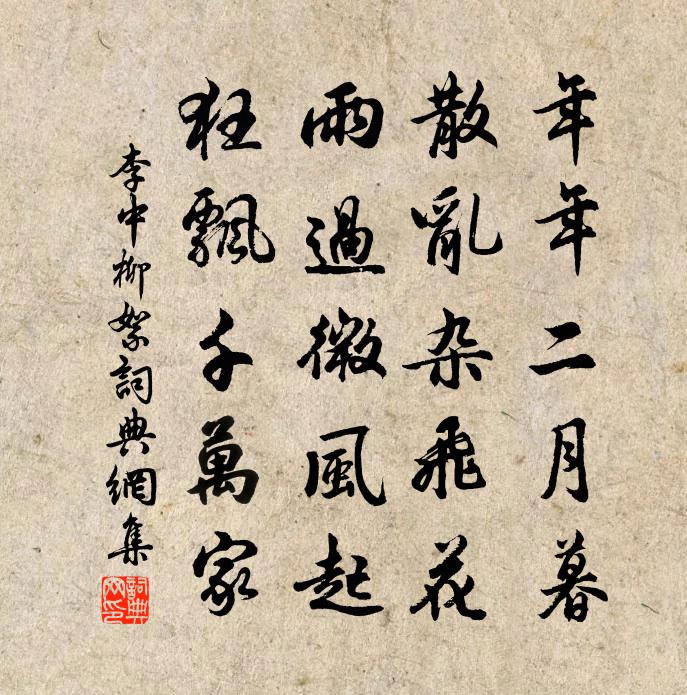 年年二月暮
散亂杂飛花
雨過微風起
狂飄千萬家
李中柳絮詞典網集
詞典網印